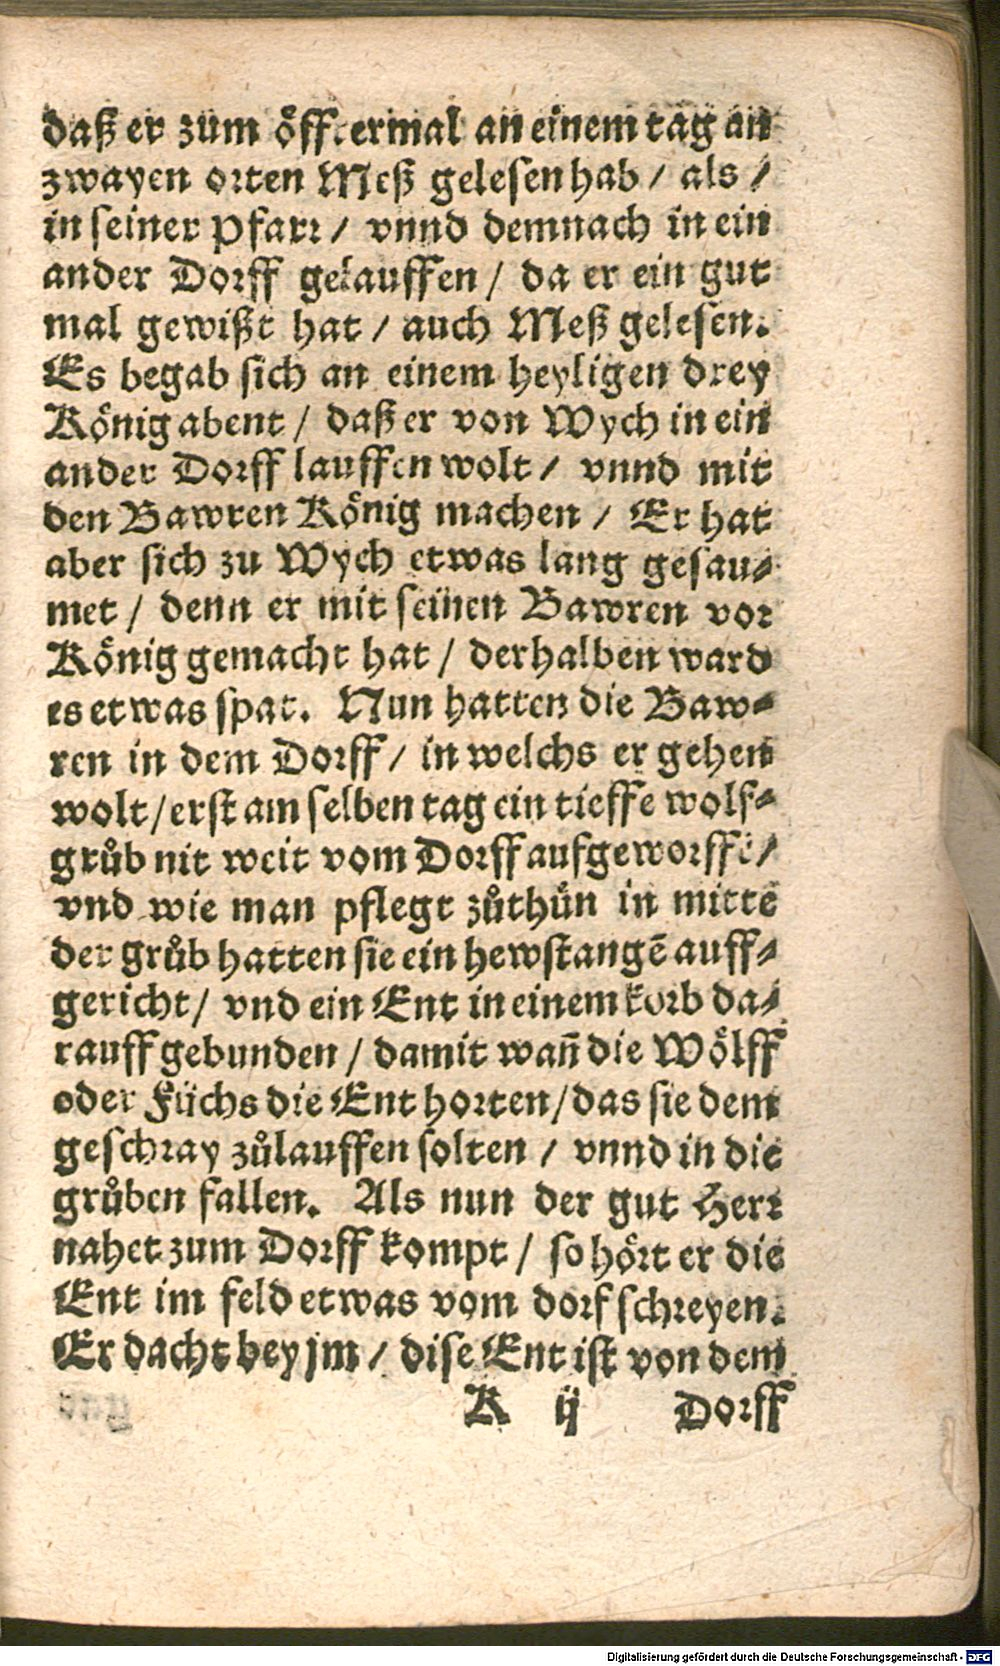 daß er zum öfftermal an einem tag an
zwayen orten Meß gelesen hab / als /
in seiner Pfarr / vnnd demnach in ein
ander Dorff gelauffen / da er ein gut
mal gewißt hat / auch Meß gelesen.
Es begab sich an einem heyligen drey
König abent / daß er von Wych in ein
ander Dorff lauffen wolt / vnnd mit
den Bawren König machen / Er hat
aber sich zu Wych etwas lang gesau⸗
met / denn er mit seinen Bawren vor
König gemacht hat / derhalben ward
es etwas spat. Nun hatten die Baw⸗
ren in dem Dorff / in welchs er gehen
wolt / erst am selben tag ein tieffe wolf⸗
grůb nit weit vom Dorff aufgeworffē /
vnd wie man pflegt zůthůn in mitte
der grůb hatten sie ein hewstangē auff⸗
gericht / vnd ein Ent in einem korb da⸗
rauff gebunden / damit wañ die Wölff
oder Füchs die Ent horten / das sie dem
geschray zůlauffen solten / vnnd in die
grůben fallen. Als nun der gut Herr
nahet zum Dorff kompt / so hört er die
Ent im feld etwas vom dorf schreyen.
Er dacht bey jm / dise Ent ist von dem
K ij Dorff
Digitalisierung gefördert durch die Deutsche Forschungsgemeinschaft - DFG